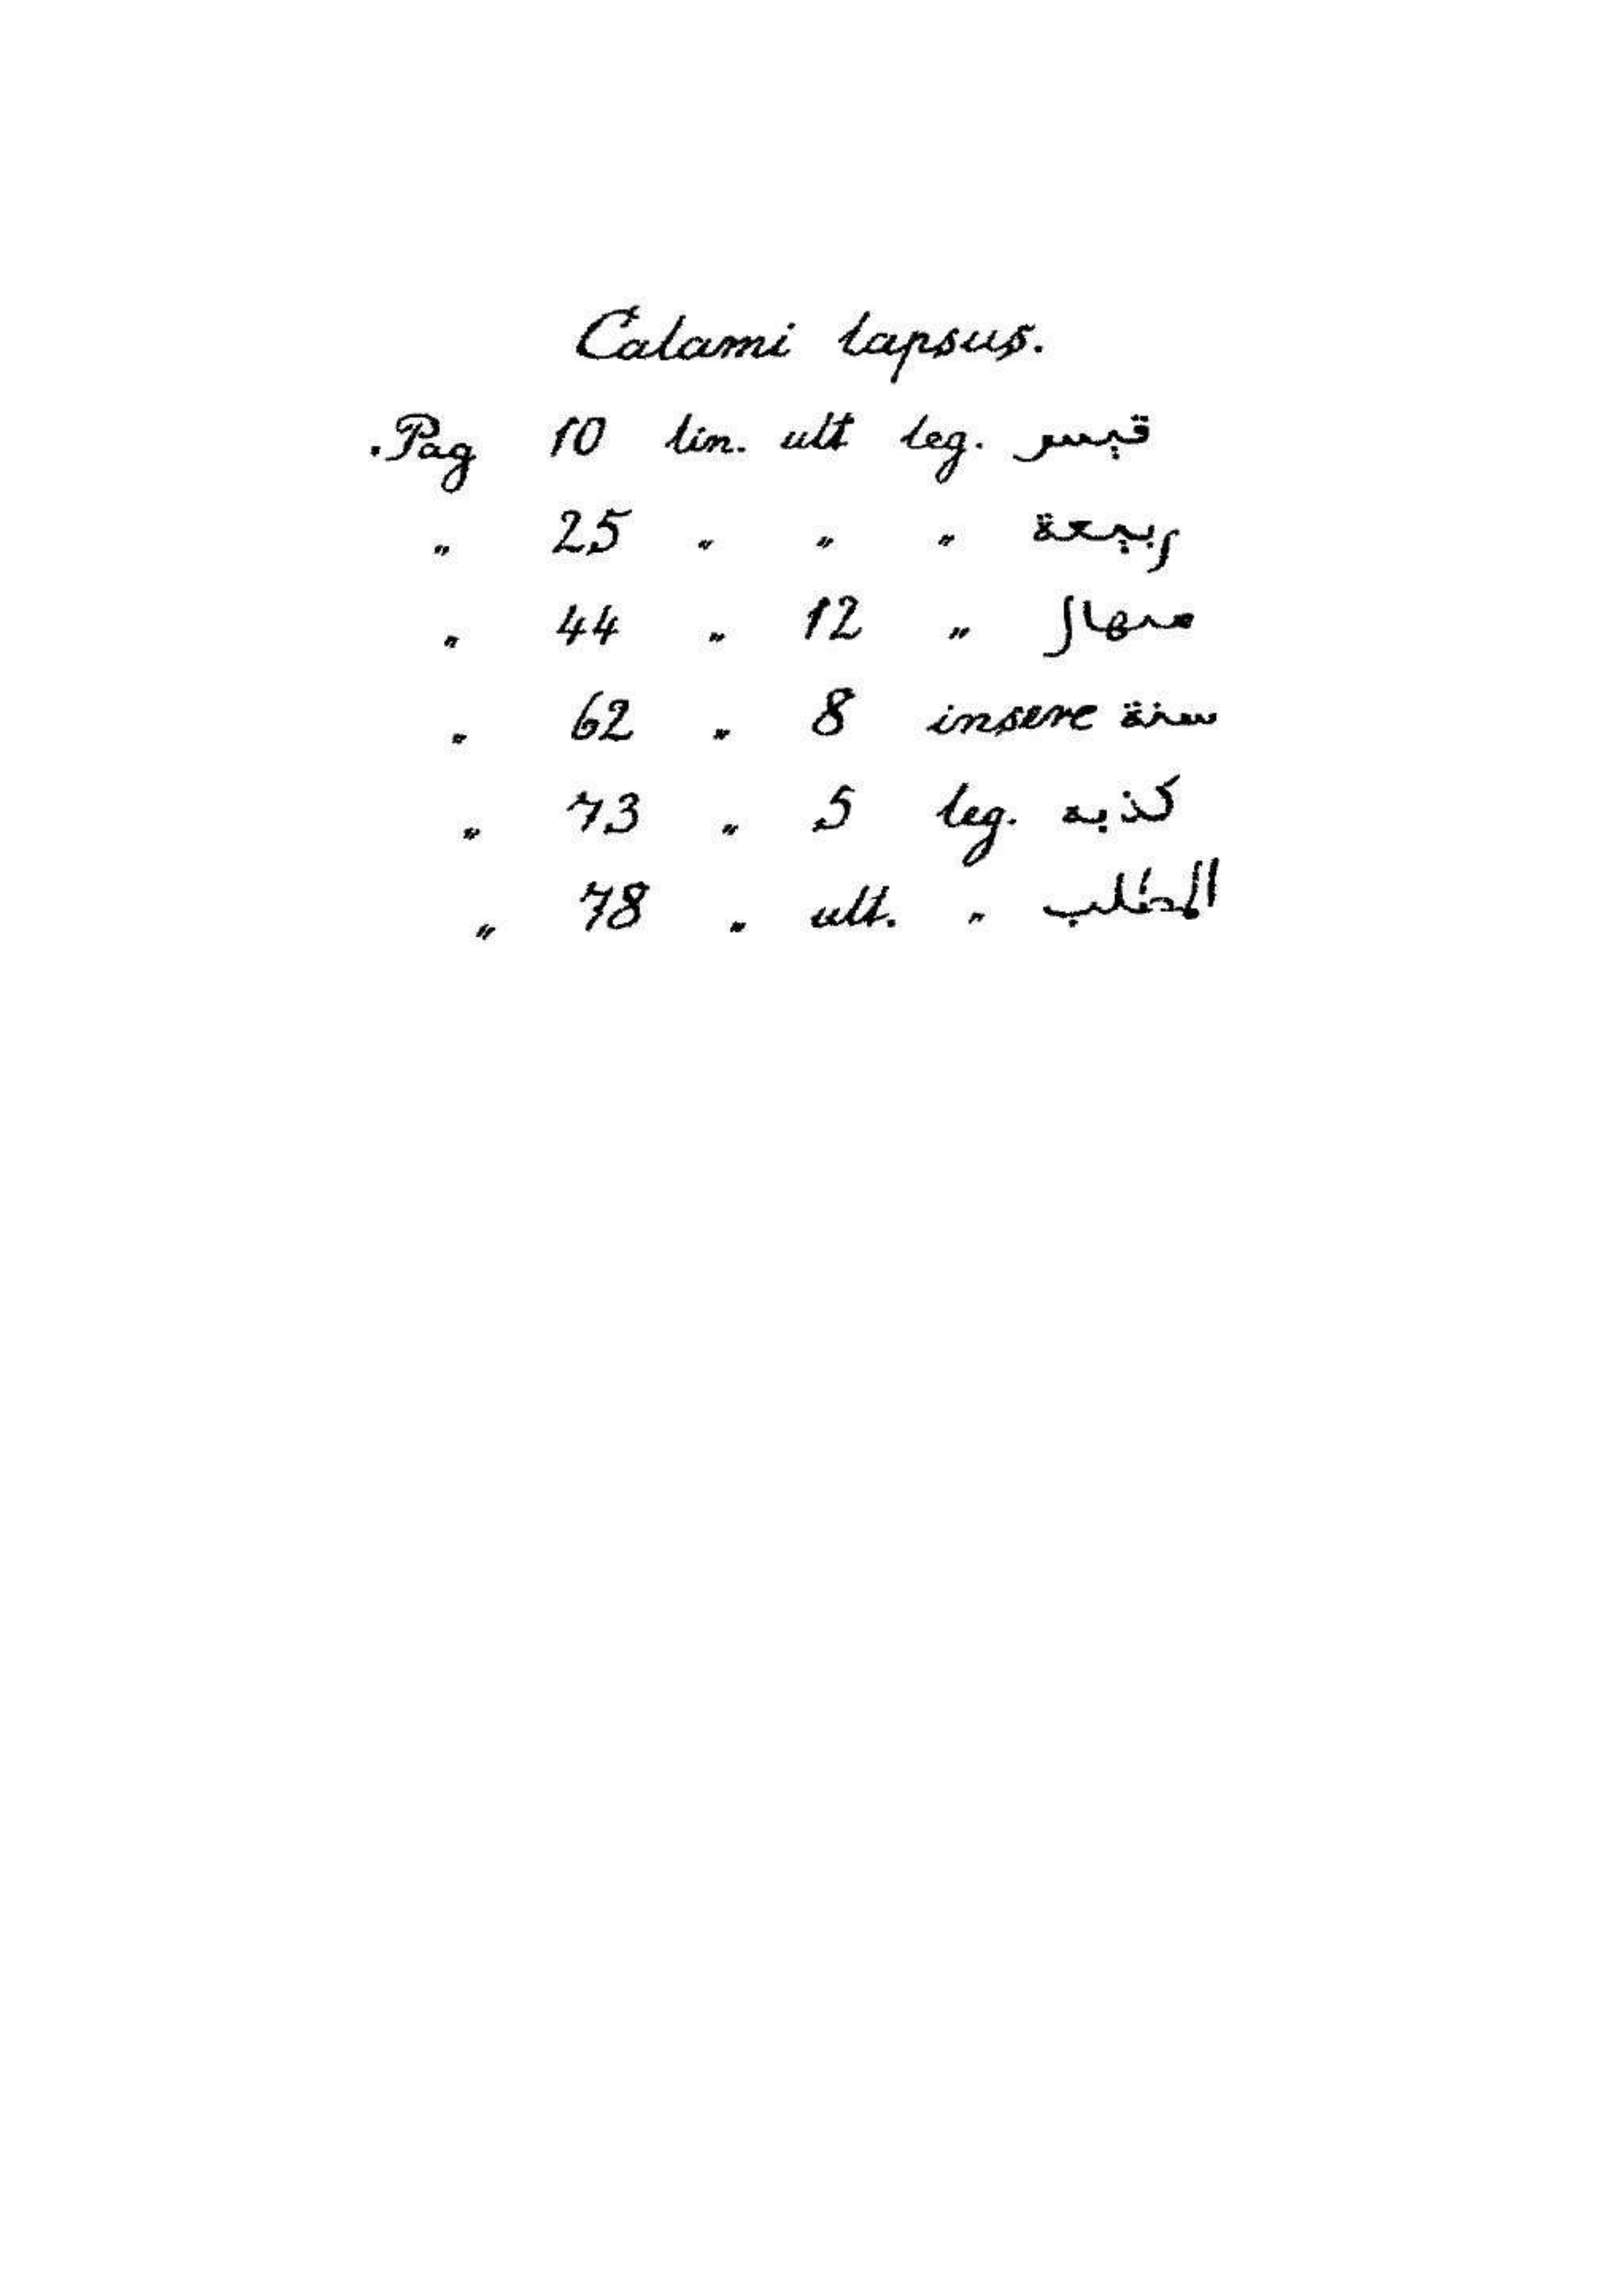 Calami lapsus.
Pag 10 lin. ult leg. قيس
" 25 " " " ربيعة
" 44 " 12 " منهال
" 62 " 8 insere سنة
" 73 " 5 leg. كذبه
" 78 " ult. " المطلب